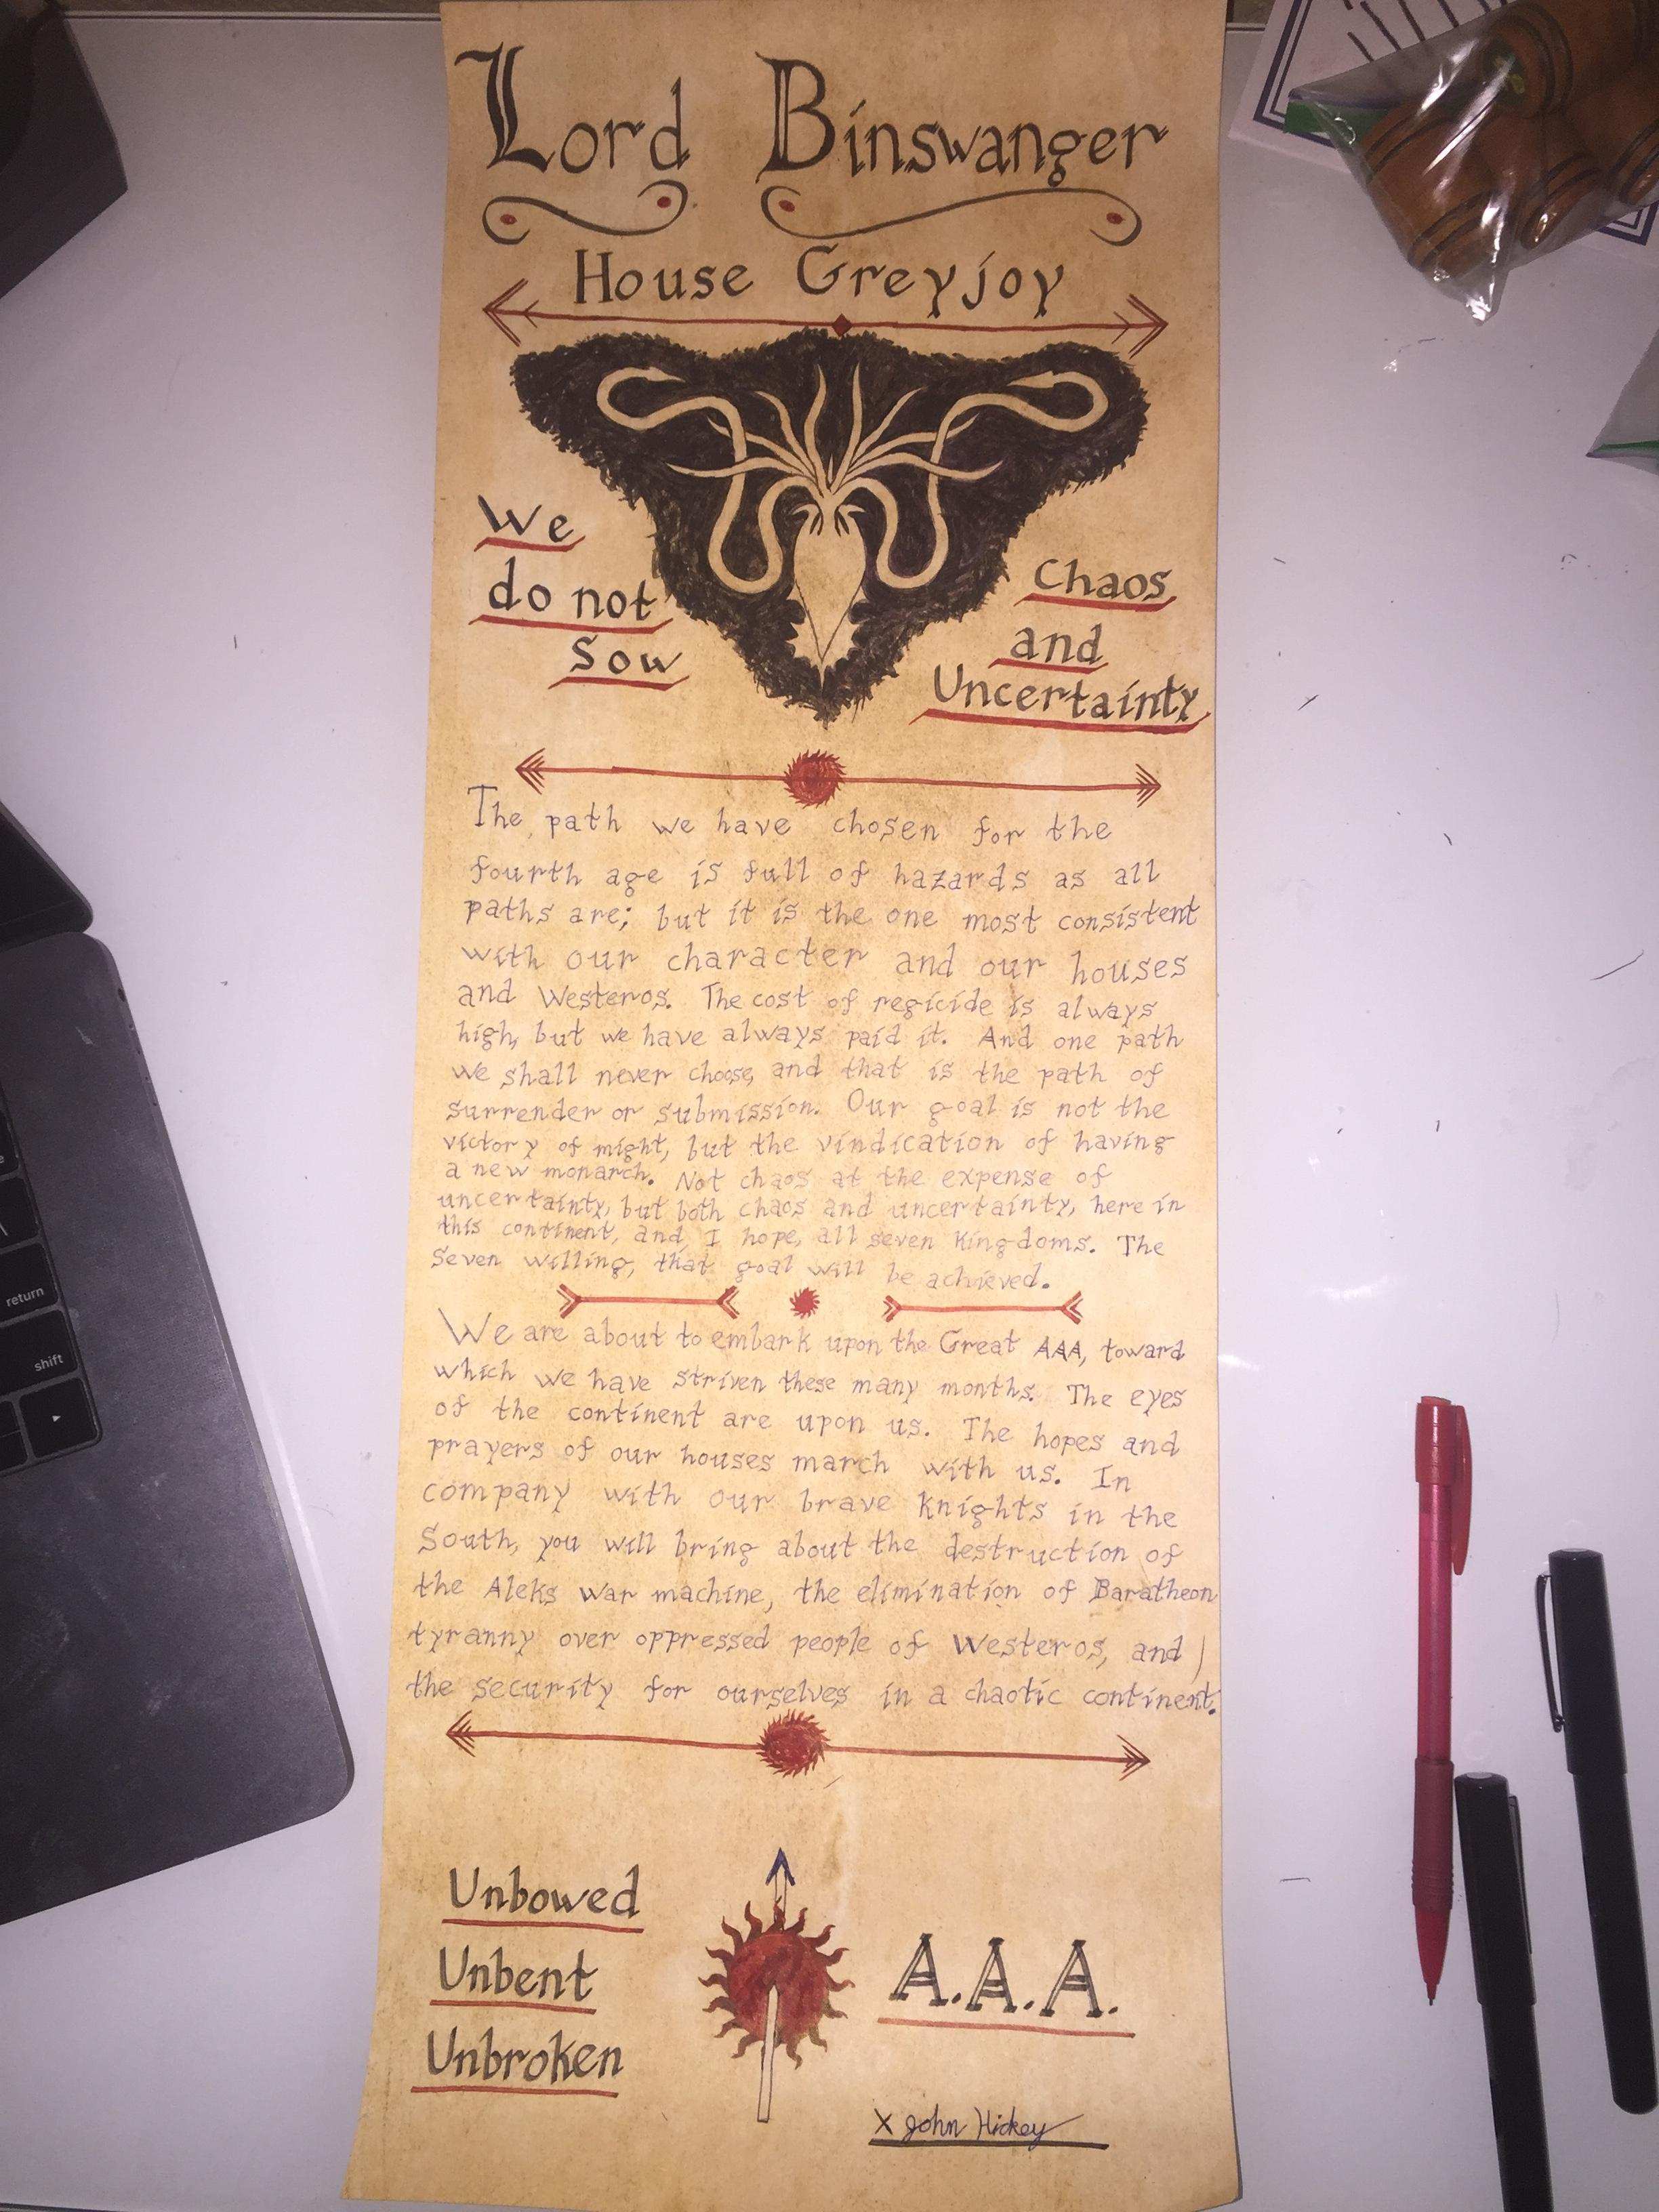 Lord Binswanger
House Greyjoy
We
do not
Sow
Chaos
and
Uncertainty
The path we have chosen for the
fourth age is full of hazards as all
paths are; but it is the one most consistent
with our character and our houses
and Westeros. The cost of regicide is always
high, but we have always paid it. And one path
we shall never choose, and that is the path of
surrender or submission. Our goal is not the
victory of might, but the vindication of having
a new monarch. Not chaos at the expense of
uncertainty, but both chaos and uncertainty, here in
this continent, and I hope, all seven Kingdoms. The
Seven willing, that goal will be achieved.
We are about to embark upon the Great AAA, toward
which we have striven these many months. The eyes
of the continent are upon us. The hopes and
prayers of our houses march with us. In
company with our brave Knights in the
South, you will bring about the destruction of
the Aleks war machine, the elimination of Baratheon
tyranny over oppressed people of Westeros, and
the security for ourselves in a chaotic continent.
Unbowed
Unbent
Unbroken
A.A.A.
x John Hickey
return
shift